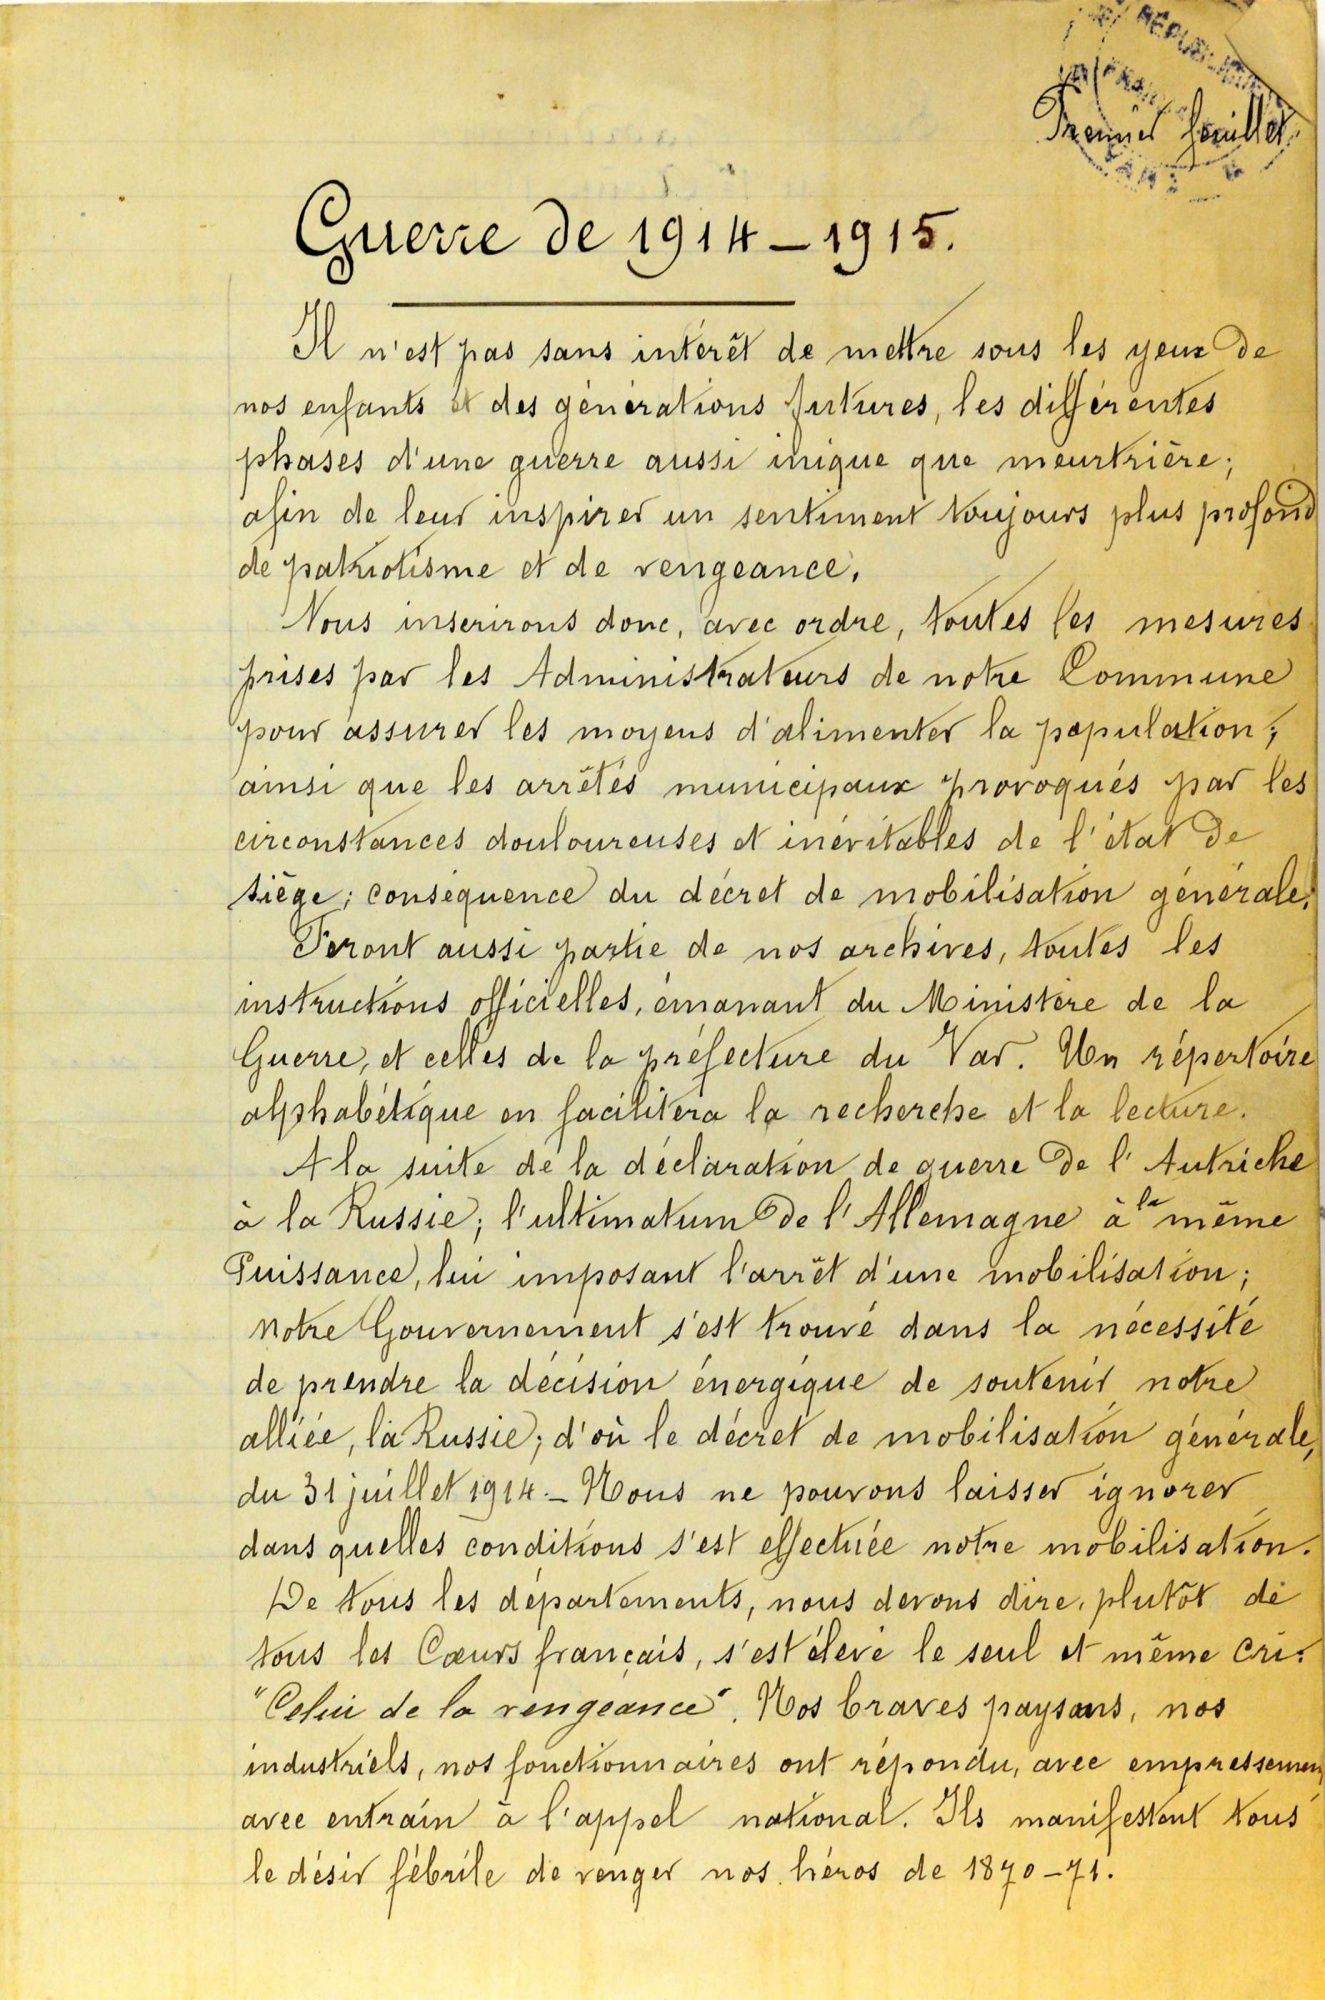 RÉPUBLIQUE
Premier feuillet.
Guerre de 1914 – 1915.
Il n'est pas sans intérêt de mettre sous les yeux de
nos enfants et des générations futures, les différentes
phases d'une guerre aussi inique que meurtrière;
afin de leur inspirer un sentiment toujours plus profond
de patriotisme et de vengeance.
Nous inserirons donc, avec ordre, toutes les mesures
prises par les Administrateurs de notre Commune
pour assurer les moyens d'alimenter la population;
ainsi que les arrêtés municipaux provoqués par les
circonstances douloureuses et inévitables de l'état de
siège; conséquence du décret de mobilisation générale.
Feront aussi partie de nos archives, toutes les
instructions officielles, émanant du Ministère de la
Guerre, et celles de la préfecture du Var. Un répertoire
alphabétique en facilitera la recherche et la lecture.
A la suite de la déclaration de guerre de l'Autriche
à la Russie; l'ultimatum de l'Allemagne à la même
Puissance, lui imposant l'arrêt d'une mobilisation;
notre Gouvernement s'est trouvé dans la nécessité
de prendre la décision énergique de soutenir notre
alliée, la Russie; d'où le décret de mobilisation générale,
du 31 juillet 1914. – Nous ne pouvons laisser ignorer
dans quelles conditions s'est effectuée notre mobilisation.
De tous les départements, nous devons dire, plutôt de
tous les Cœurs français, s'est élevé le seul et même cri:
"Celui de la vengeance". Nos braves paysans, nos
industriels, nos fonctionnaires ont répondu, avec empressemen
avec entrain à l'appel national. Ils manifestent tous
le désir fébrile de venger nos héros de 1870–71.